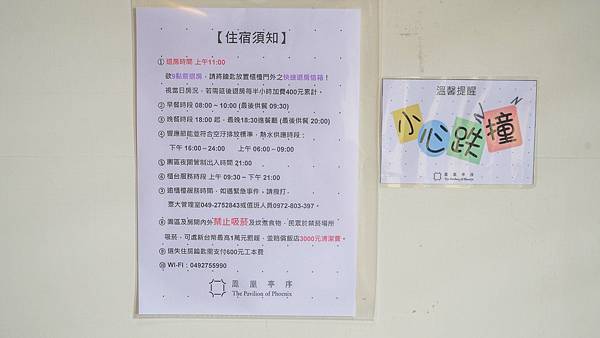 【住宿須知】
① 退房時間 上午11:00
欲9點前退房，請將鑰匙放置櫃檯門外之快速退房信箱！
視當日房況，若需延後退房每半小時加費400元累計。
② 早餐時段 08:00~10:00 (最後供餐 09:30)
③ 晚餐時段 18:00 起，最晚18:30進餐廳 (最後供餐 20:00)
④ 響應節能並符合空汙排放標準，熱水供應時段：
下午 16:00－24:00 上午 06:00－09:00
⑤ 園區夜間管制出入時間 21:00
⑥ 櫃台服務時段 上午 09:30~下午 21:00
⑦ 逾櫃檯服務時間，如遇緊急事件，請撥打，
意大管理室049-2752843或值班人員0972-803-397。
⑧ 園區及房間內外禁止吸菸及炊煮食物，民眾於禁菸場所
吸菸，可處新台幣最高1萬元罰鍰，並賠償飯店3000元清潔費。
⑨ 遺失住房鑰匙需支付600元工本費
⑩ Wi-Fi：0492755990
鳳凰亭序
The Pavilion of Phoenix
溫馨提醒
小心跌撞
鳳凰亭序
The Pavilion of Phoenix